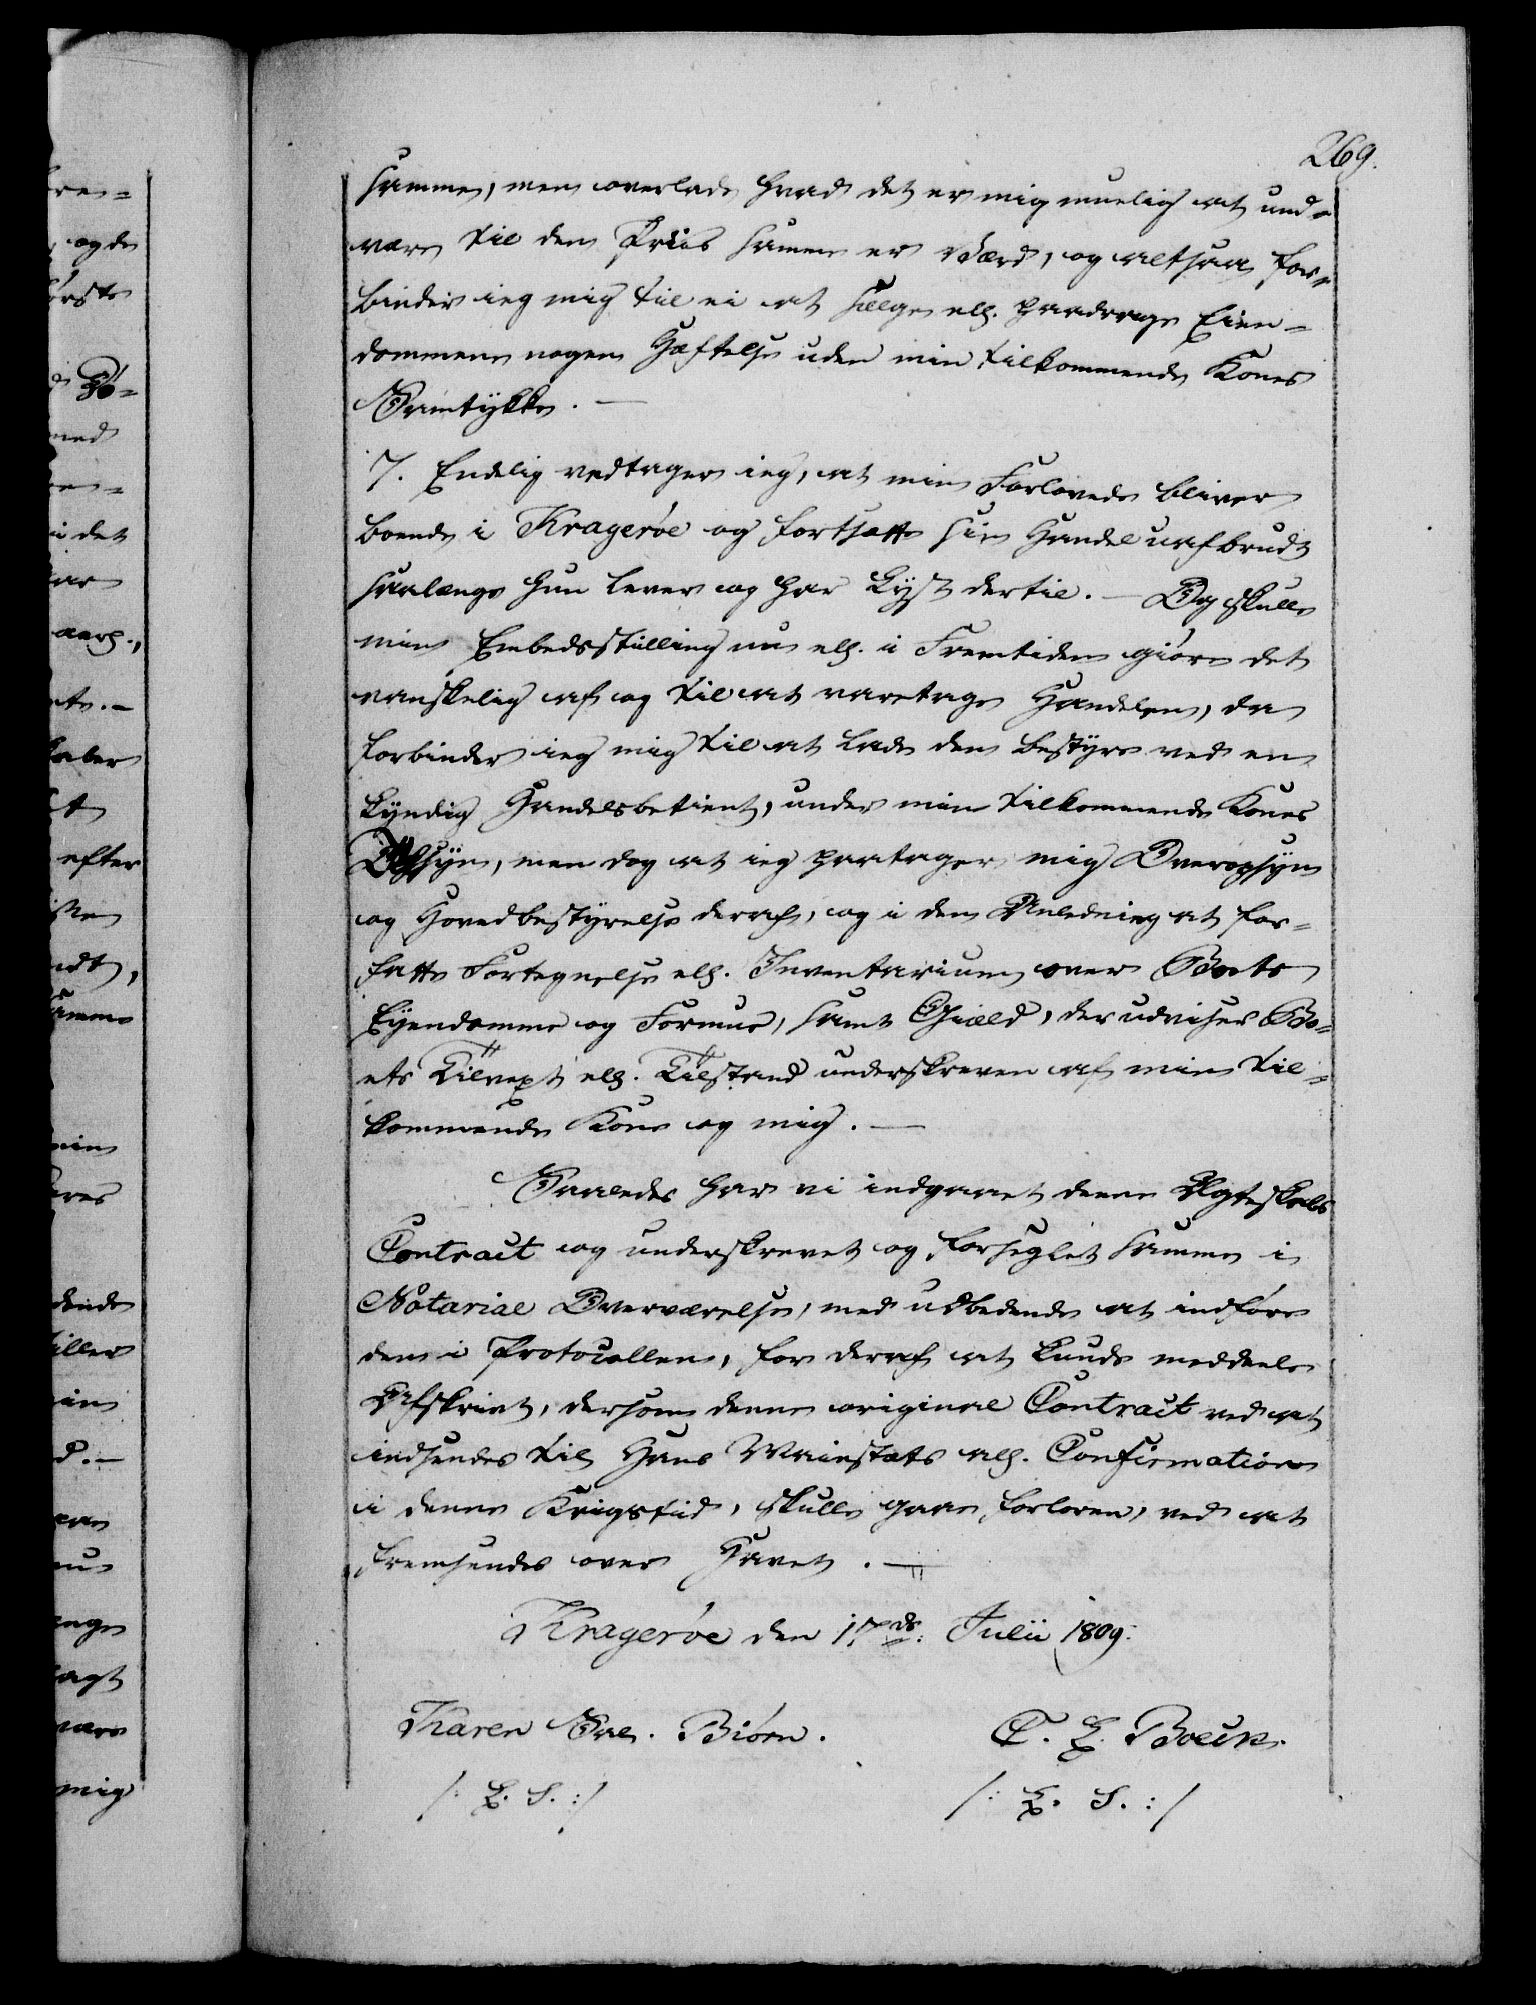 269.
samme, men overlade hvad det er mig muelig at und-
være til den Priis samme er værd, og altsaa for-
binder ieg mig til ei at sælge ell. paadrage Eien-
dommene nogen Hæftelse uden min tilkommende Kones
Samtykke. —
7. Endelig vedtager ieg, at min Forlovede bliver
boende i Kragerøe og fortsætte sin Handel uafbrudt
saalænge hun lever og har Lyst dertil. — Og skulle
min Embedsstilling nu ell. i Fremtiden giøre det
vanskelig af og til at varetage Handelen, da
forbinder ieg mig til at lade den bestyre ved en
kyndig Handelsbetient, under min tilkommende Kones
Opsyn, men dog at ieg paatager mig Overopsyn
og Hovedbestyrelse deraf, og i den Anledning at for-
fatte Fortegnelse ell. Inventarium over Boets
Eyendomme og Formue, samt Giæld, der udviser Bo-
ets Tilvext ell. Tilstand underskreven af min til-
kommende Kone og mig. —
Saaledes har vi indgaaet denne Ægteskabs
Contract og underskrevet og forseglet samme i
Notarial Overværelse, med udbedende at indføre
den i Protocollen, for deraf at kunde meddeele
Afskrivt, dersom denne original Contract ved at
indsendes til Hans Maiestæts all. Confirmation
i denne Krigstid, skulle gaae forloren, ved at
fremsendes over Havet. —
Kragerøe den 17de Julii 1809.
Karen Sal. Biørn. C. L. Boeck.
/: L. S. :/ /: L. S. :/